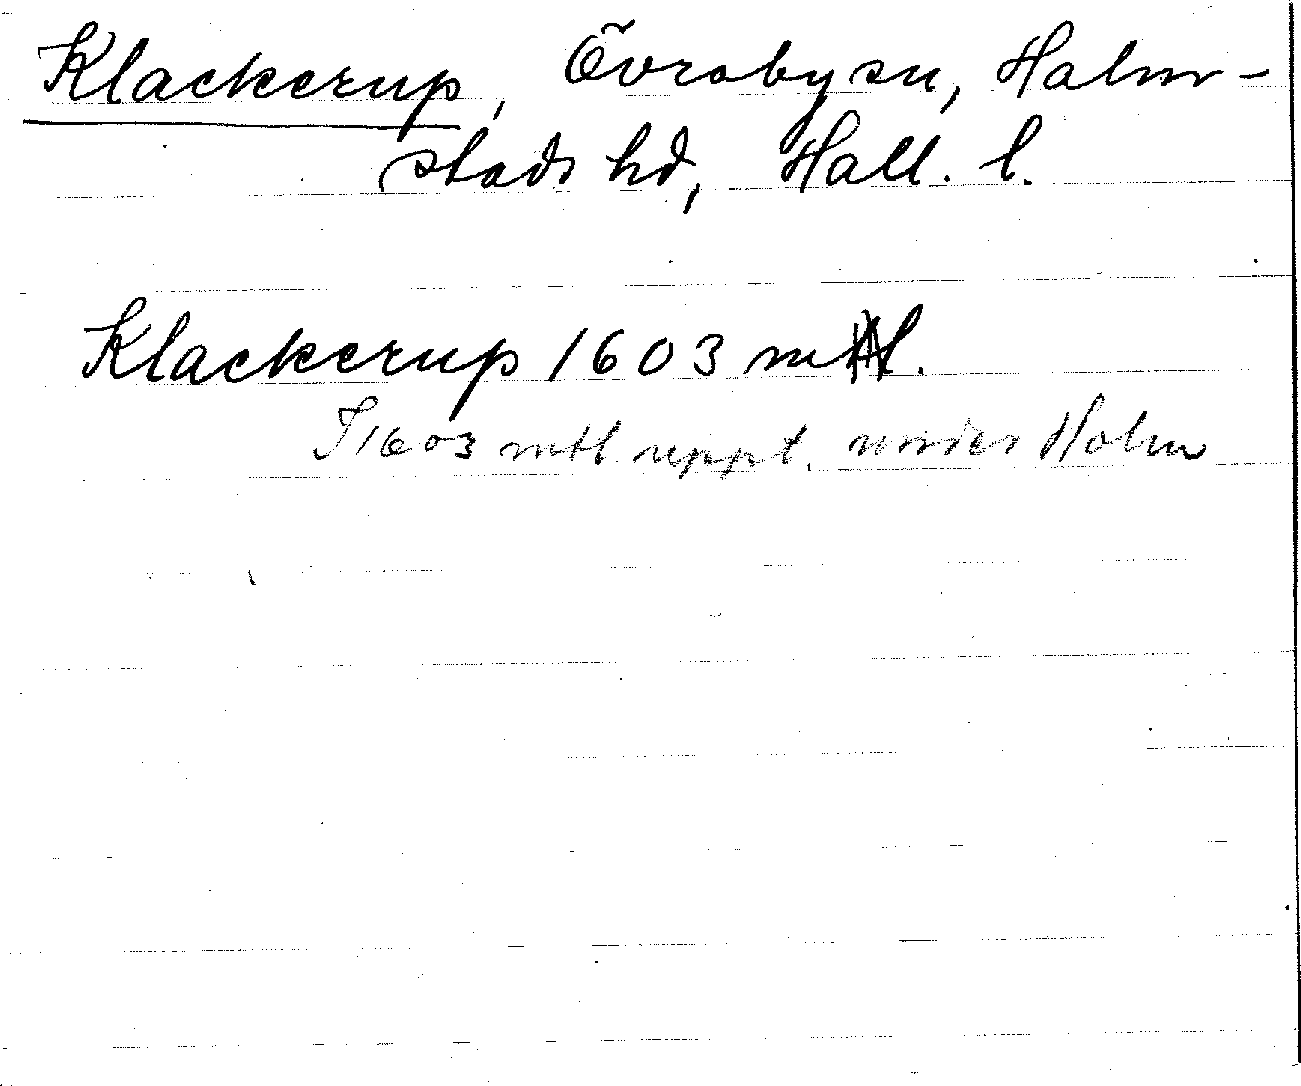 Klackerup, Övraby sn, Halm-
stads hd, Hall. l.
Klackerup 1603 mtl.
I 1603 mtl uppt. under Holm